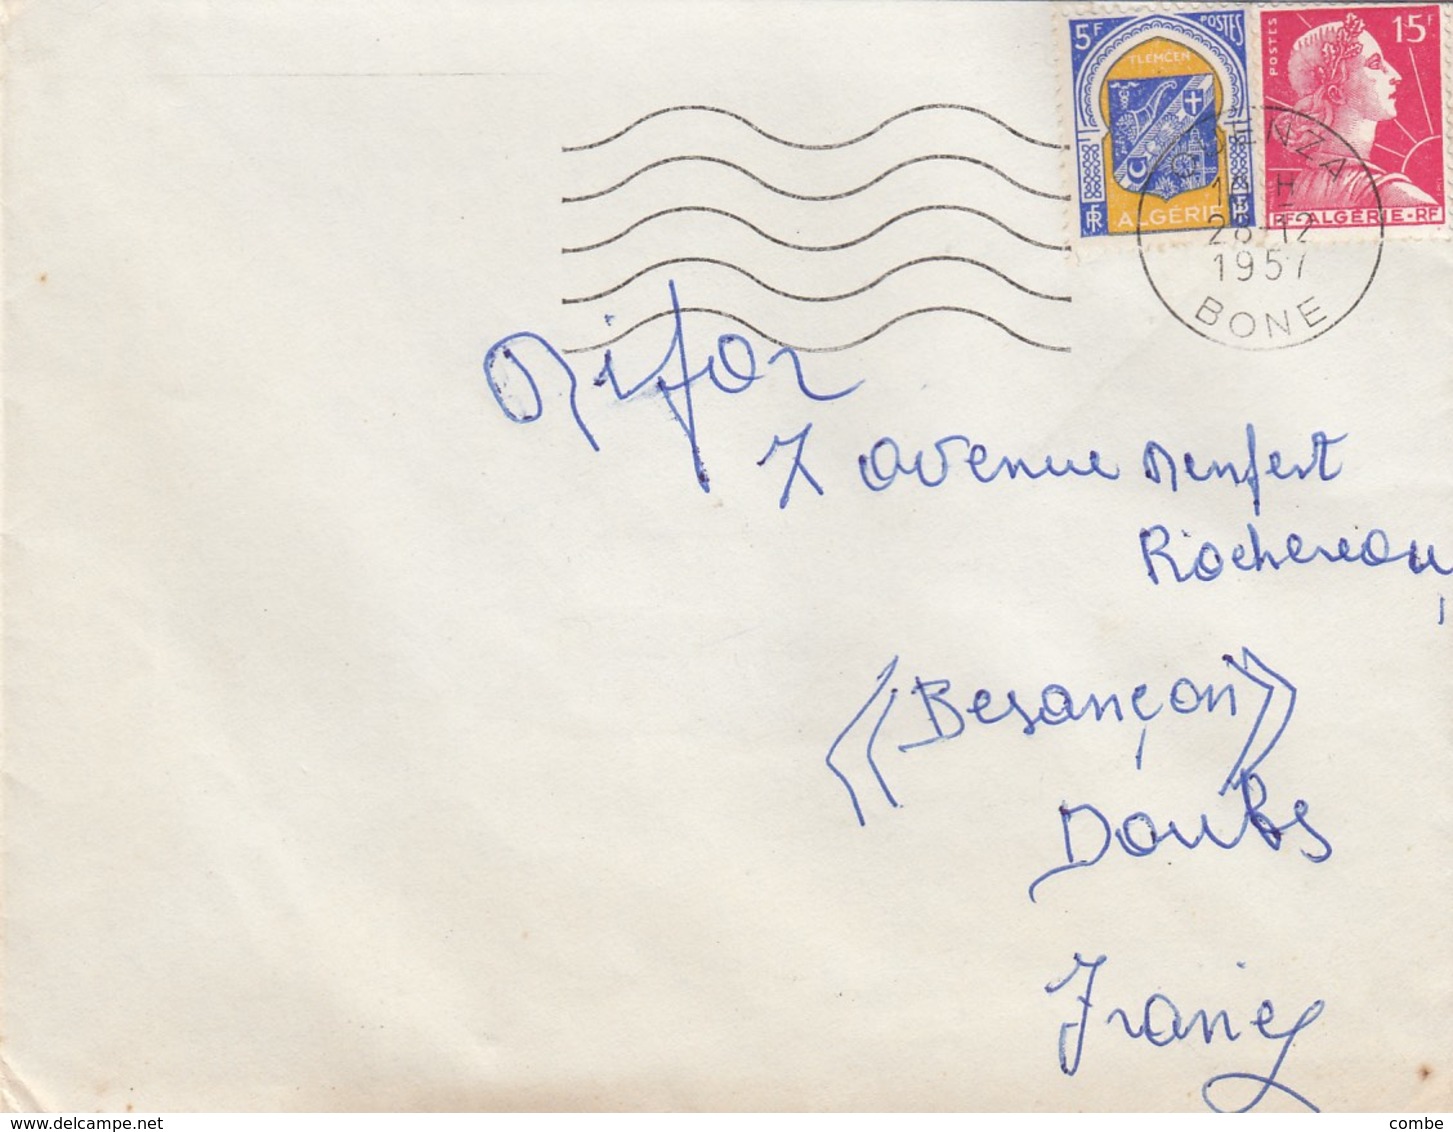 5F POSTES
TLEMCEN
RF ALGÉRIE RF
POSTES 15F
RF-ALGÉRIE-RF
28-12
1957
BONE
7 avenue Denfert
Rochereau
«Besançon»
Doubs
France
www.delcampe.net
combe